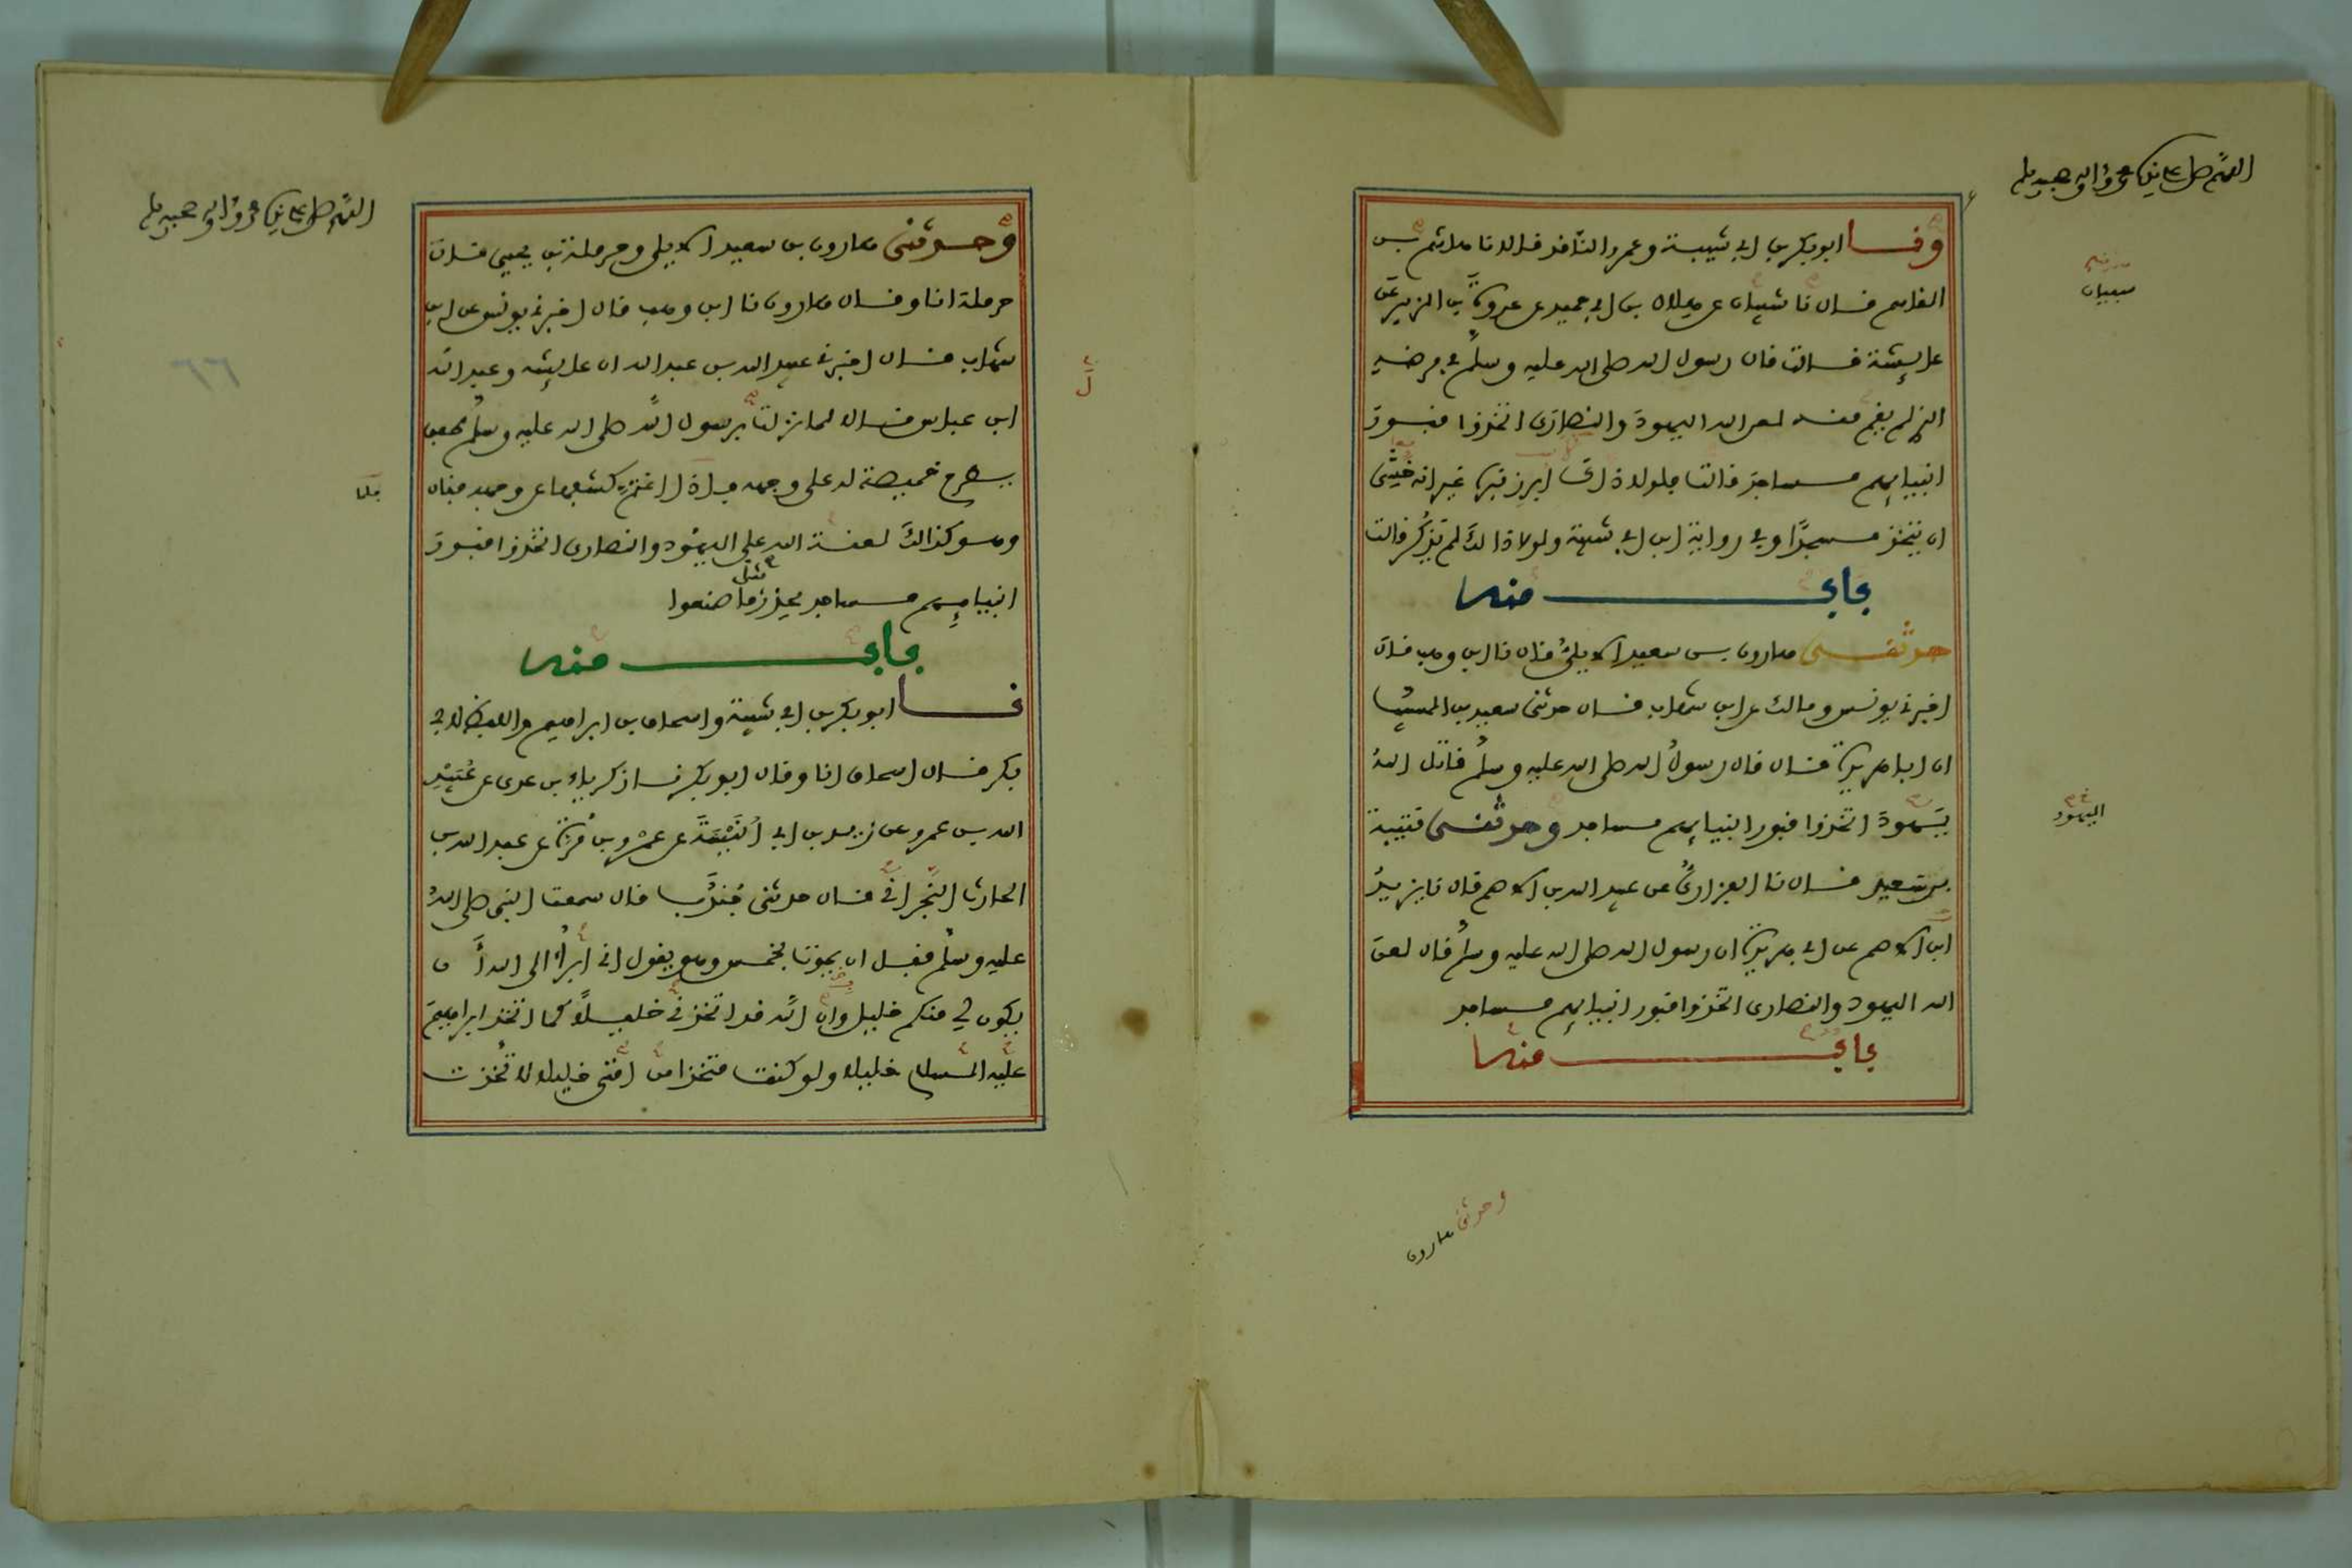 اللهم صل على نبيك محمد وءاله وصحبه وسلم
ونا ابو بكر بن ابي شيبة وعمرو الناقد قالا نا هاشم بن
القاسم قال نا شيبان عن هلال بن ابي حميد عن عروة بن الزبير عن
عايشة قالت قال رسول الله صلى الله عليه وسلم في مرضه
الذي لم يقم منه لعن الله اليهود والنصارى اتخذوا قبور
انبيايهم مساجد قالت فلولا ذاك ابرز قبره غير انه خشي
ان يتخذ مسجدا وفي رواية ابن ابي شيبة ولولا ذاك لم يذكر قالت
باب منه
حدثني هارون بن سعيد الايلي قال نا ابن وهب قال
اخبرني يونس ومالك عن ابن شهاب قال حدثني سعيد بن المسيب
ان ابا هريرة قال قال رسول الله صلى الله عليه وسلم قاتل الله
يهود اتخذوا قبور انبيايهم مساجد وحدثني قتيبة
بن سعيد قال نا الفزاري عن عبد الله بن الاصم قال نا يزيد
ابن الاصم عن ابي هريرة ان رسول الله صلى الله عليه وسلم قال لعن
الله اليهود والنصارى اتخذوا قبور انبيايهم مساجد
باب منه
سفيان
اليهود
وحدثني هارون
اللهم صل على نبيك محمد وءاله وصحبه وسلم
وحدثني هارون بن سعيد الايلي وحرملة بن يحيى قال
حرملة انا وقال هارون نا ابن وهب قال اخبرني يونس عن ابن
شهاب قال اخبرني عبيد الله بن عبد الله ان عايشة وعبد الله
ابن عباس قالا لما نزلت برسول الله صلى الله عليه وسلم طفق
يطرح خميصة له على وجهه فاذا اغتم كشفها عن وجهه فقال
وهو كذالك لعنة الله على اليهود والنصارى اتخذوا قبور
انبيايهم مساجد يحذر مثل ما صنعوا
باب منه
نا ابو بكر بن ابي شيبة واسحاق بن ابراهيم واللفظ لابي
بكر قال اسحاق انا وقال ابو بكر نا زكرياء بن عدي عن عبيد
الله بن عمرو عن زيد بن ابي انيسة عن عمرو بن مرة عن عبد الله بن
الحارث النجراني قال حدثني جندب قال سمعت النبي صلى الله
عليه وسلم قبل ان يموت بخمس وهو يقول اني ابرأ الى الله أن
يكون لي منكم خليل وان الله قد اتخذني خليلا كما اتخذ ابراهيم
عليه السلام خليلا ولو كنت متخذا من امتي خليلا لاتخذت
فلما
٦٦